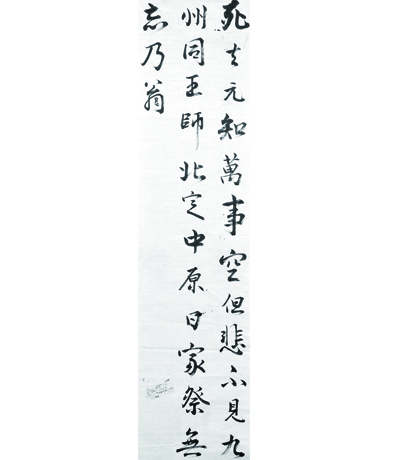 死去元知萬事空但悲不見九
州同王師北定中原日家祭無
忘乃翁